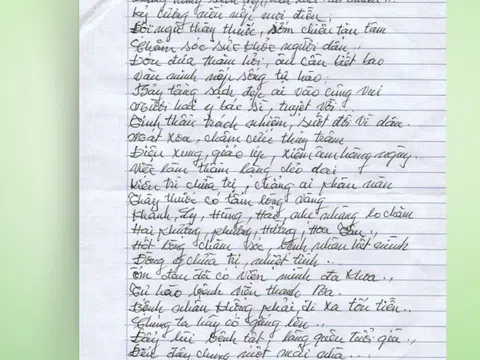 Kỹ cương nền nếp mọi điều
Đội ngũ thầy thuốc, sớm chiều tận tâm
Chăm sóc sức khỏe người dân
Đón đưa thăm hỏi, ân cần biết bao
Văn minh nếp sống tự hào
Tầng sạch đẹp ai vào cũng vui
Người hoá y bác sĩ, tuyệt vời
Tinh thần trách nhiệm, suốt đời vì dân
Mát xoa, châm cứu thủy trâm
Điện xung, giác lý, hàng ngày
Việc làm thầm lặng dẻo dai
Viên trí chữa trị, chẳng ai phàn nàn
Thầy thuốc có tấm lòng vàng
Khánh, Lý, Hưng, Hải, nhẹ nhàng lo chăm
Hai phường phường, Hường, Hoa
Hết lòng chăm sóc, bệnh nhân hết mình
Đông y chữa trị, nhiệt tình
Ôm đau đã có viện mình đa khoa
Tự hào bệnh viện Thanh Ba
Bệnh nhân không phải đi xa tốn tiền
Chúng ta hãy cố gắng lên
Đẩy lùi bệnh tật, làng quên tuổi già
Đến đây chung một mái nhà